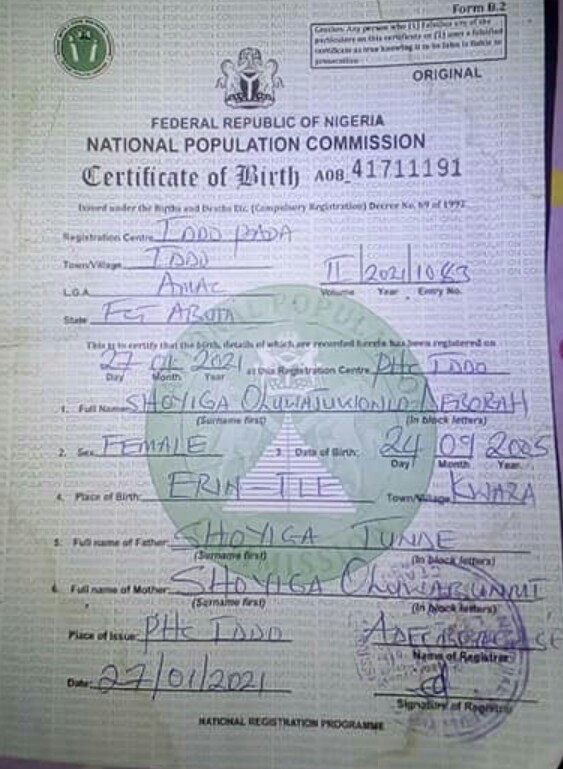 Form B.2
Caution: Any person who (1) falsifies any of the
particulars on this certificate or (2) uses a falsified
certificate as true knowing it to be false is liable to
prosecution
ORIGINAL
FEDERAL REPUBLIC OF NIGERIA
NATIONAL POPULATION COMMISSION
Certificate of Birth A08_41711191
Issued under the Births and Deaths Etc. (Compulsory Registration) Decree No. 69 of 1992
Registration Centre IDDO PADA
Town/Village IDDO
L.G.A AMAC
II/2021/1083
Volume Year Entry No.
State FCT ABUJA
This is to certify that the birth, details of which are recorded herein has been registered on
27 01 2021 at this Registration Centre PHC IDDO
Day Month Year
1. Full Name SHOYIGA DEBORAH
(Surname first) (In block letters)
2. Sex FEMALE 3. Date of Birth: 24 09 2005
Day Month Year
4. Place of Birth: ERIN-ILE Town/Village KWARA
5. Full name of Father: SHOYIGA TUNDE
(Surname first) (In block letters)
6. Full name of Mother: SHOYIGA OLUWABUNMI
(Surname first) (In block letters)
Place of Issue: PHC IDDO
Name of Registrar
Date: 27/01/2021
Signature of Registrar
NATIONAL REGISTRATION PROGRAMME